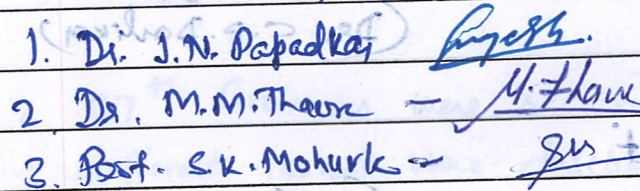 1. Dr. J.N. Papadkar
2 Dr. M.M. Thawre – M. Thawre
3. Prof. S.K. Mohurle –